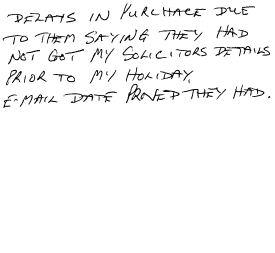 DELAYS IN PURCHACE DUE
TO THEM SAYING THEY HAD
NOT GOT MY SOLICITORS DETAILS
PRIOR TO MY HOLIDAY,
E-MAIL DATE PROVED THEY HAD.